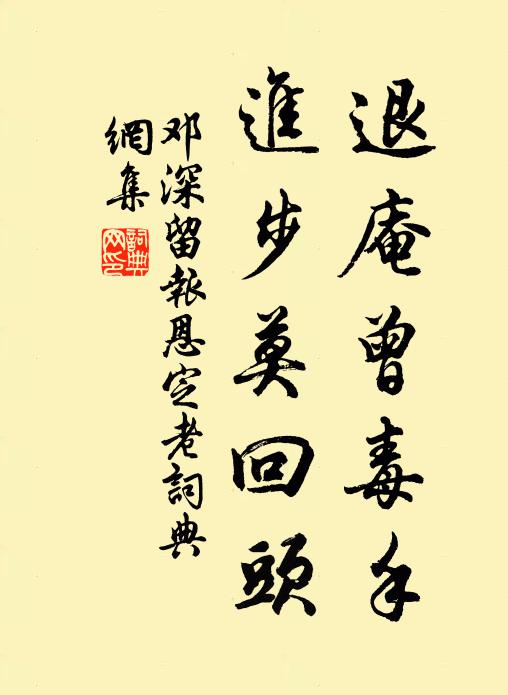 退庵曾毒手
進步莫回頭
邓深留報恩定老詞典
網集
詞典
网印